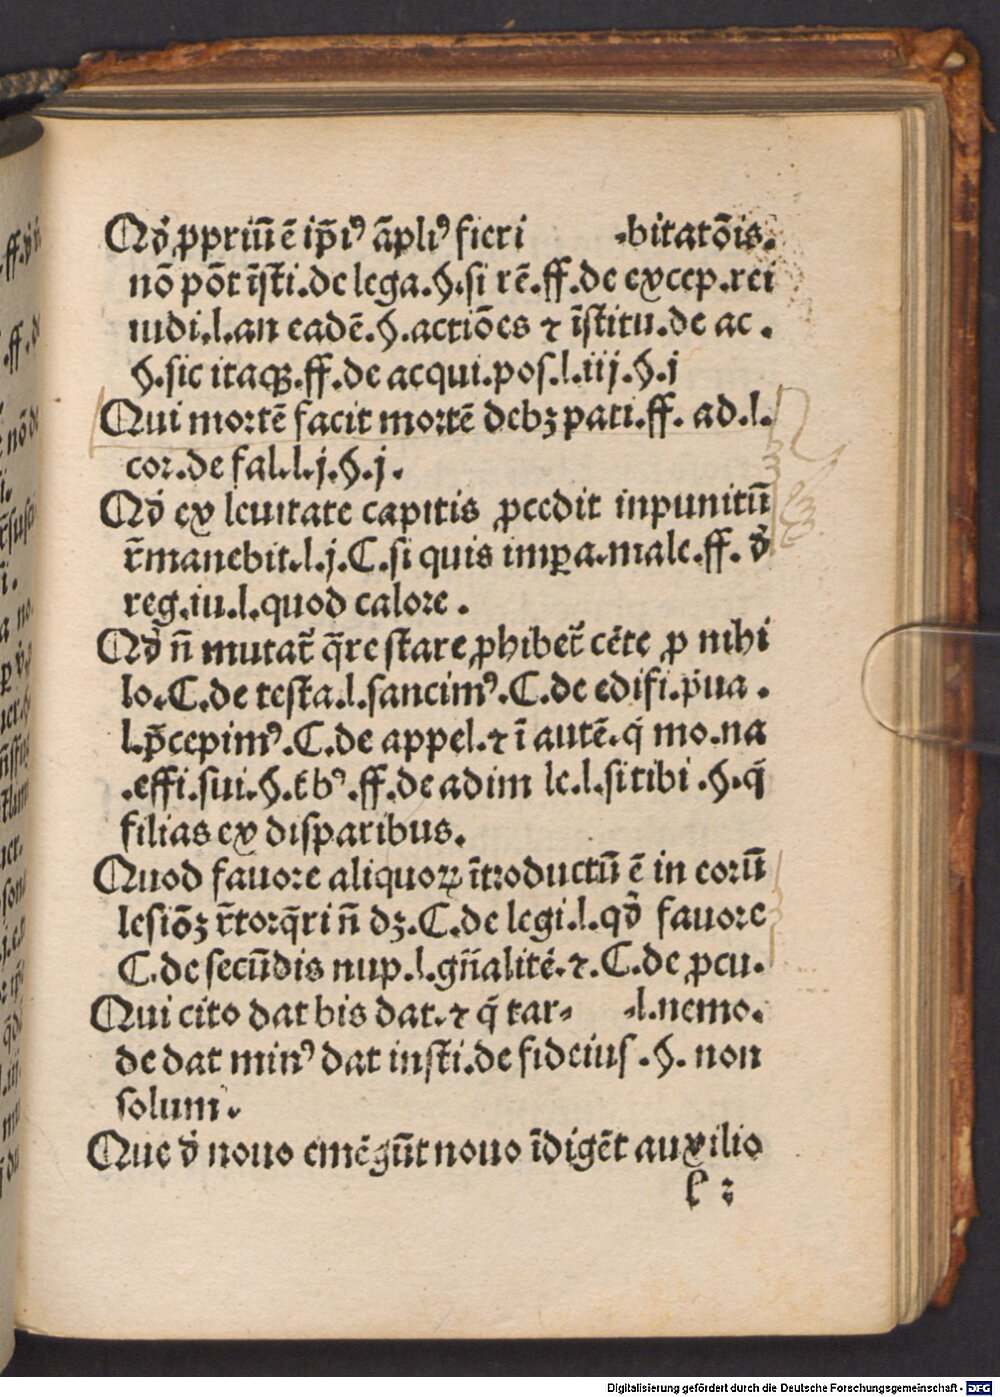 Qđ ꝓpriū ē ip̄iꝰ āpliꝰ fieri ⸗bitatōis.
nō pōt īsti.de lega.§.si rē.ff.de excep.rei
iudi.l.an eadē.§.actiōes ⁊ īstitu.de ac.
§.sic itaqꝫ.ff.de acqui.pos.l.iij.§.j
Qui mortē facit mortē debꝫ pati.ff. ad.l.
cor.de fal.l.j.§.j.
Qđ ex leuitate capitis ꝓcedit inpunitū
r̄manebit.l.j.C.si quis impꝑa.male.ff. đ
reg.iu.l.quod calore.
Qđ n̄ mutat᷑ q̄re stare ꝓhibet᷑ cēte ꝓ nihi
lo.C.de testa.l.sancimꝰ.C.de edifi.pͥua.
l.p̄cepimꝰ.C.de appel.⁊ ī autē.q̄ mo.na
.effi.sui.§.t̄bꝰ.ff.de adim le.l.si tibi.§.q̄
filias ex disparibus.
Quod fauore aliquoꝝ ītroductū ē in eorū
lesiōꝫ r̄torq̄ri n̄ dꝫ.C.de legi.l.qđ fauore
C.de secūdis nup.l.gn̄alitē.⁊.C.de ꝓcu.
Qui cito dat bis dat.⁊ q̄ tar⸗ ⸗l.nemo.
de dat minꝰ dat insti.de fideius.§. non
solum.
Que đ nouo emēgūt nouo īdigēt auxilio
l 2
Digitalisierung gefördert durch die Deutsche Forschungsgemeinschaft - DFG